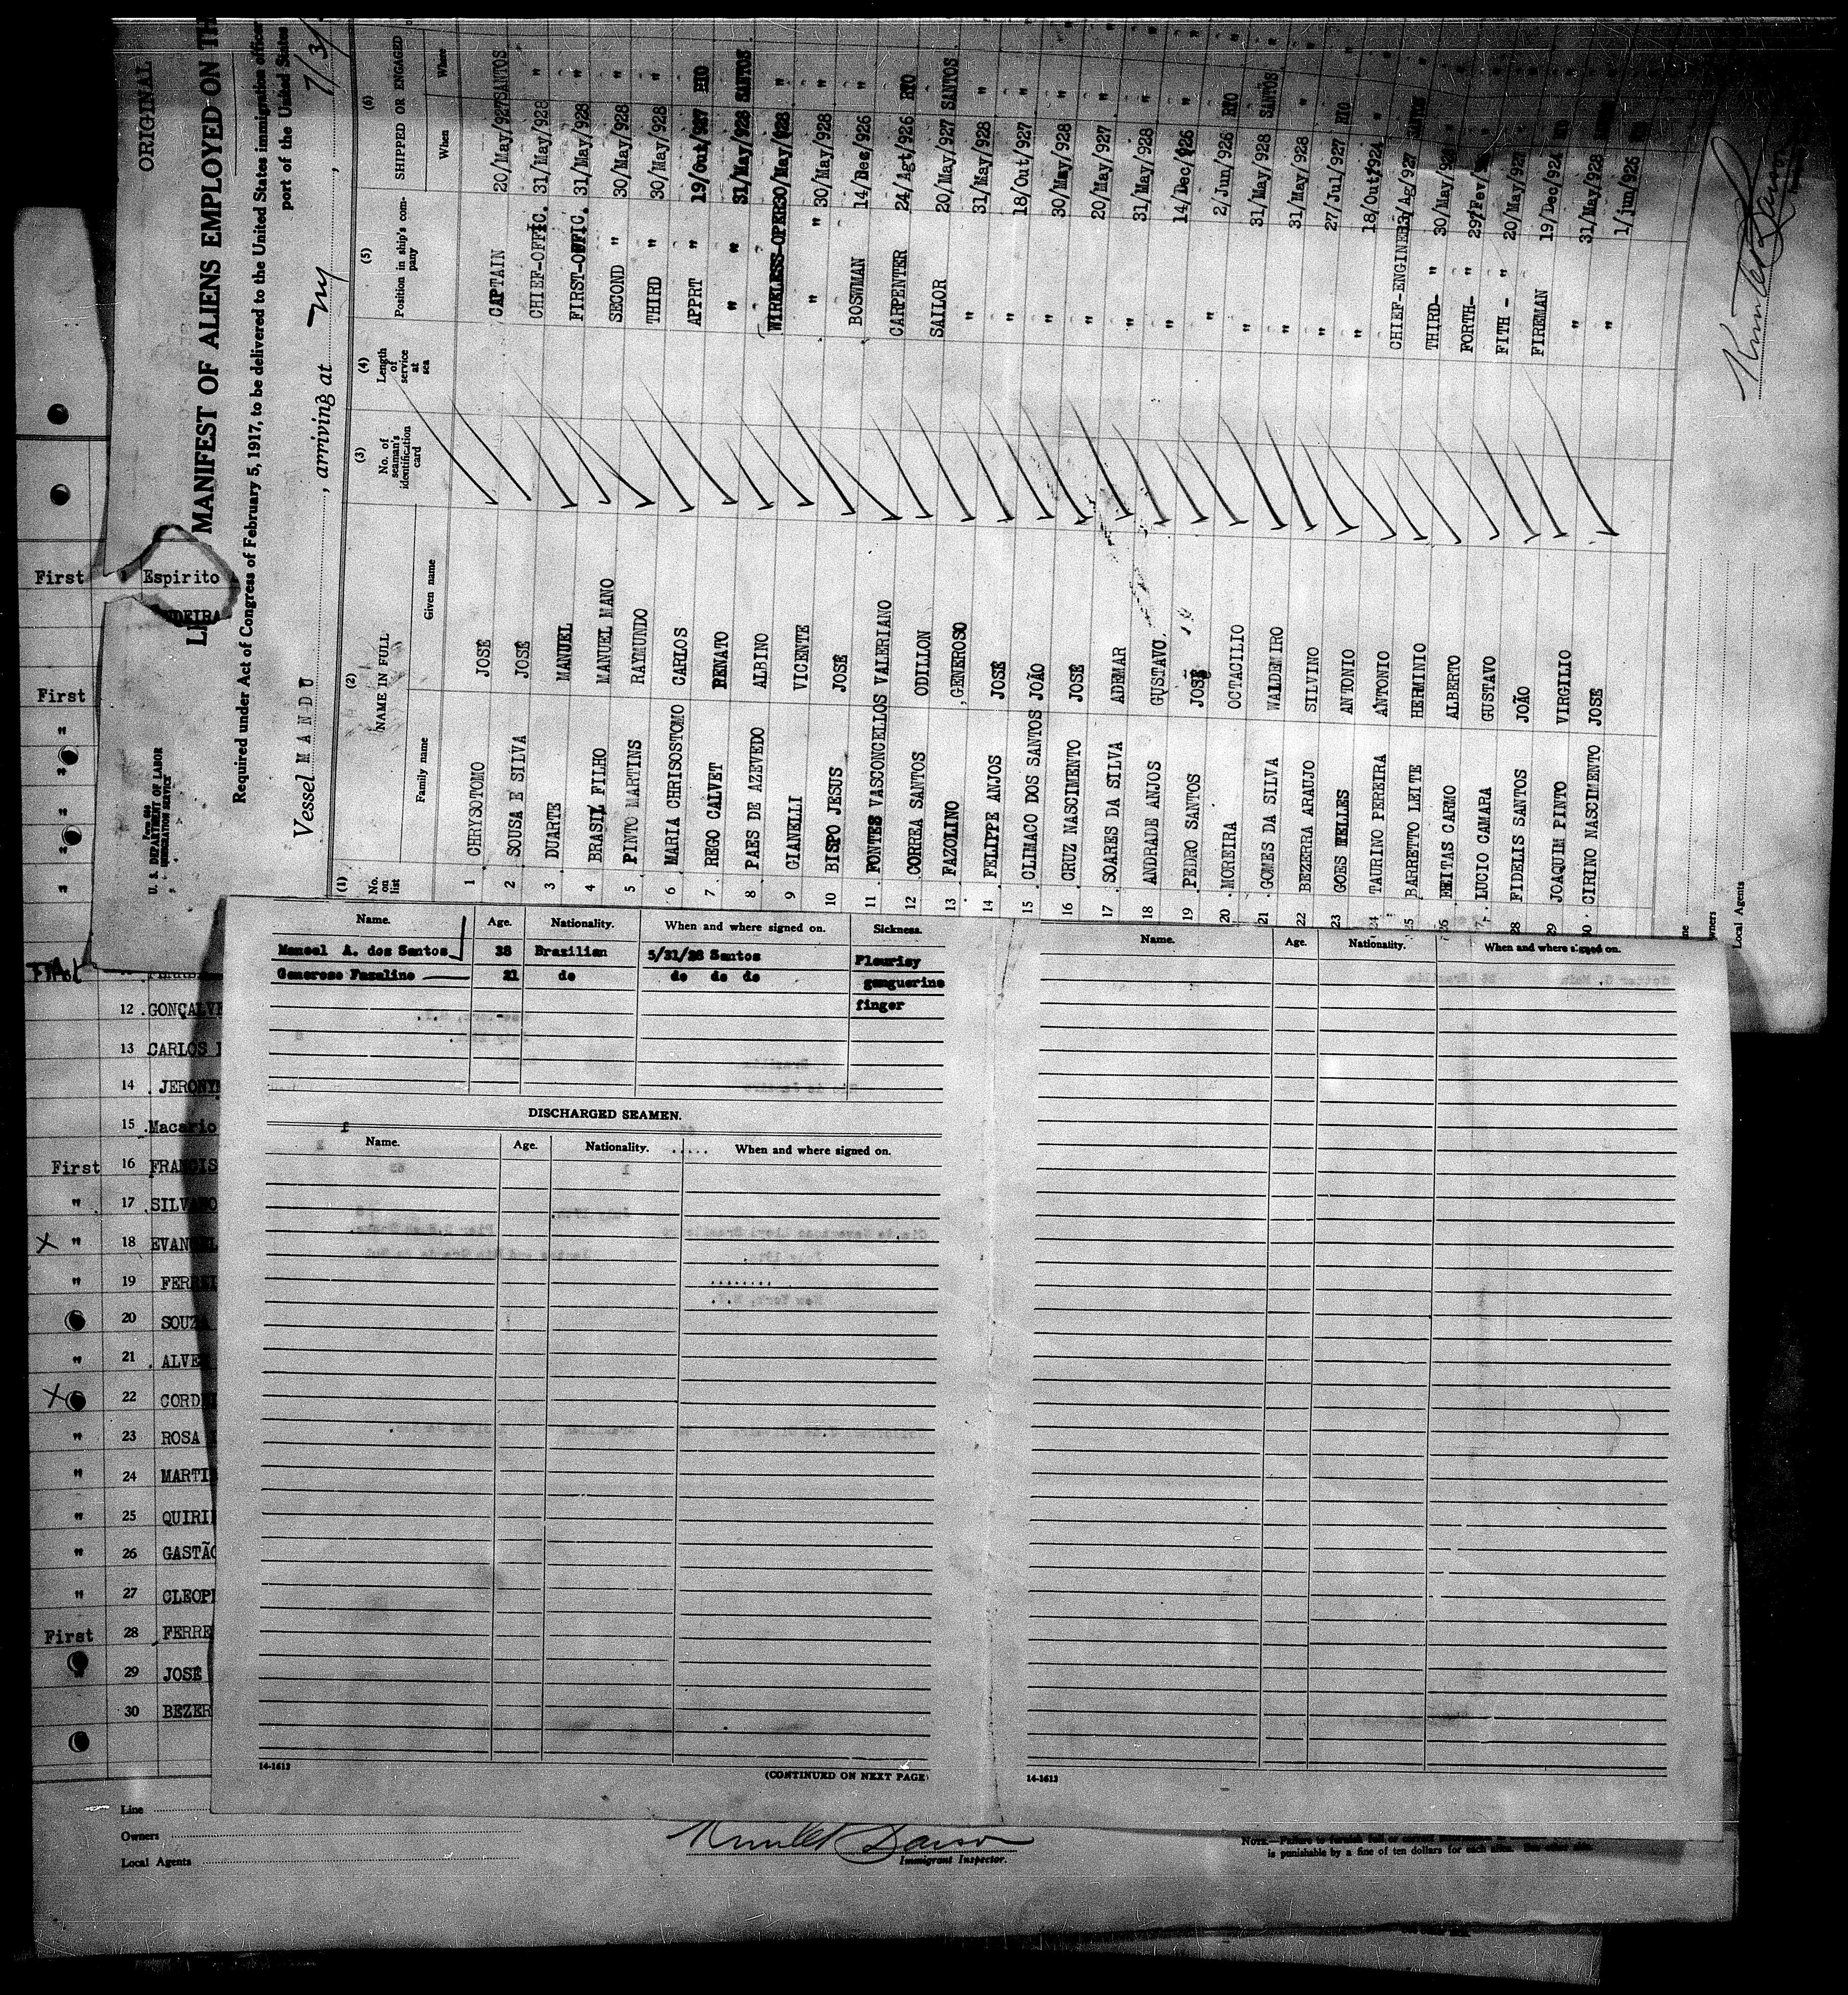 ORIGINAL
MANIFEST OF ALIENS EMPLOYED ON
Required under Act of Congress of February 5, 1917, to be delivered to the United States immigration officer
port of the United States
Vessel MANDU, arriving at NY, 7/3/
U. S. DEPARTMENT OF LABOR
IMMIGRATION SERVICE
(1) (2) (3) (4) (5) (6)
No. on list NAME IN FULL No. of seaman's identification card Length of service at sea Position in ship's company SHIPPED OR ENGAGED
Family name Given name When Where
1 CHRYSOTOMO JOSÉ CAPTAIN 20/May/927 SANTOS
2 SOUSA E SILVA JOSÉ CHIEF-OFFIC. 31/May/928 "
3 DUARTE MANUEL FIRST-OFFIC. 31/May/928 "
4 BRASIL FILHO MANUEL MANO SECOND " 30/May/928 "
5 PINTO MARTINS RAYMUNDO THIRD " 30/May/928 "
6 MARIA CHRISOSTOMO CARLOS APPRT " 19/Out/927 RIO
7 REGO CALVET RENATO " " 31/May/928 SANTOS
8 PAES DE AZEVEDO ALBINO WIRELESS-OPER 30/May/928 "
9 GIANELLI VICENTE " " 30/May/928 "
10 BISPO JESUS JOSÉ BOSWMAN 14/Dec/926 "
11 FONTES VASCONCELLOS VALERIANO CARPENTER 24/Agt/926 RIO
12 CORREA SANTOS ODILLON SAILOR 20/May/927 SANTOS
13 FAZOLINO GENEROSO " 31/May/928 "
14 FELIPPE ANJOS JOSÉ " 18/Out/927 "
15 CLIMACO DOS SANTOS JOÃO " 30/May/928 "
16 CRUZ NASCIMENTO JOSÉ " 20/May/927 "
17 SOARES DA SILVA ADEMAR " 31/May/928 "
18 ANDRADE ANJOS GUSTAVO " 14/Dec/926 "
19 PEDRO SANTOS JOSÉ " 2/Jun/926 RIO
20 MOREIRA OCTACILIO " 31/May/928 SANTOS
21 GOMES DA SILVA WALDEMIRO " 31/May/928 "
22 BEZERRA ARAUJO SILVINO " 27/Jul/927 RIO
23 GOES TELLES ANTONIO " 18/Out/924 "
24 TAURINO PEREIRA ANTONIO CHIEF-ENGINEER /Ag/927
25 BARRETTO LEITE HERMINIO THIRD- " 30/May/928 "
26 FEITAS CARMO ALBERTO FORTH- " 29/Fev/ "
LUCIO CAMARA GUSTAVO FITH - " 20/May/927 "
28 FIDELIS SANTOS JOÃO FIREMAN 19/Dec/924
29 JOAQUIM PINTO VIRGILIO " 31/May/928
30 CIRINO NASCIMENTO JOSE " 1/jun/926
Owners
Local Agents
First Espirito
First
"
"
"
"
"
First
12 GONÇALV
13 CARLOS
14 JERONY
15 Macario
First 16 FRANCIS
" 17 SILVANO
X " 18 EVAN
" 19 FERREI
20 SOUZA
" 21 ALVE
X 22 CORD
" 23 ROSA
" 24 MARTI
" 25 QUIRI
" 26 GASTÃO
" 27 CLEOP
First 28 FERRE
" 29 JOSÉ
30 BEZER
Name. Age. Nationality. When and where signed on. Sickness.
Manoel A. dos Santos 38 Brazilian 5/31/28 Santos Pleurisy
Generoso Fazolino 21 do do do do ganguerine
finger
DISCHARGED SEAMEN.
Name. Age. Nationality. When and where signed on.
14-1613 (CONTINUED ON NEXT PAGE)
Name. Age. Nationality. When and where signed on.
14-1613
Line
Owners
Local Agents
Immigrant Inspector.
NOTE.—Failure to furnish full or correct
is punishable by a fine of ten dollars for each alien. See other side.